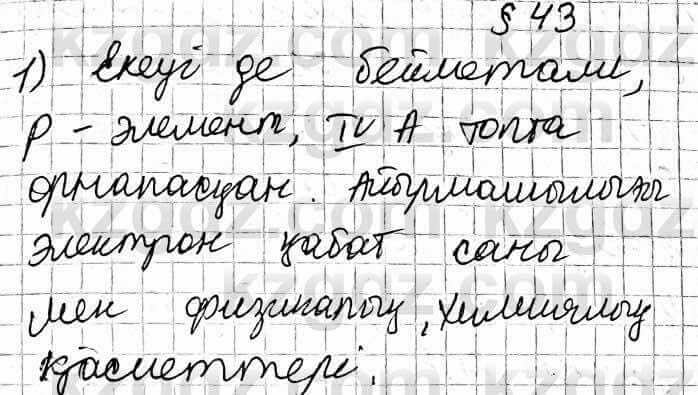 § 43
1) Екеуі де бейметалл,
р - элемент, IV А топта
орналасқан. Айырмашылығы
электрон қабат саны
мен физикалық, химиялық
қасиеттері.